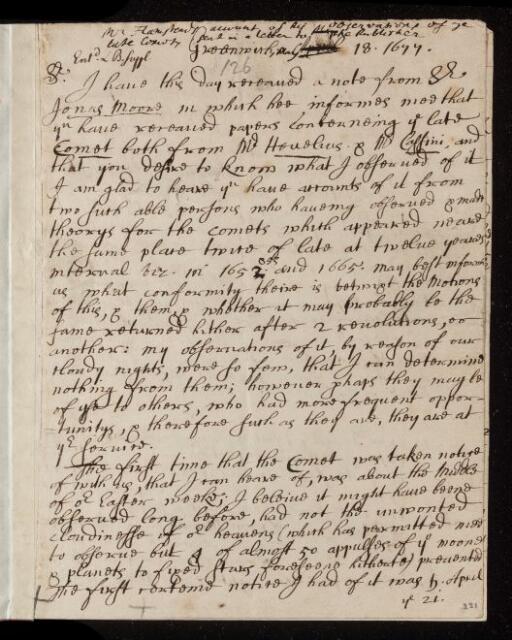 Mr Flamsteads account of his observations of ye
late Comet sent in a letter to the Publisher
Entd LB. Suppl
Greenwich 18. 1677.
126
Sr.
I have this day receaved a note from Sr
Jonas Moore in which hee informes mee that
yu have receaved papers concerneing ye late
Comet both from Mr Hevelius & Mr Cassini and
that you desire to know what I observed of it
I am glad to heare yu have accounts of it from
two such able persons who haveing observed & made
theorys for the comets which appeared neare
the same place twice of late at twelve yeares
intervall viz. in 1652 and 1665. may best informe
us what conformity theire is betwixt the Motions
of this, & them, & whether it may probably be the
same returned hither after 2 revolutions, or
another: my observations of it, by reason of our
cloudy nights, were so few, that I can determine
nothing from them; however phaps they may be
of use to others, who had more frequent oppor-
tunitys, & therefore such as they are, they are at
yr service.
The first time that the Comet was taken notice
of with us, that I can heare of, was about the Middle
of or Easter weeke; I beleive it might have beene
observed long before, had not the unwonted
cloudinesse of or heavens (which has permitted mee
to observe but 4 of almost 50 appulses of ye moone
& planets to fixed stars foreseene hitherto) prevented
The first certeine notice I had of it was ♄ April
ye 21.
221